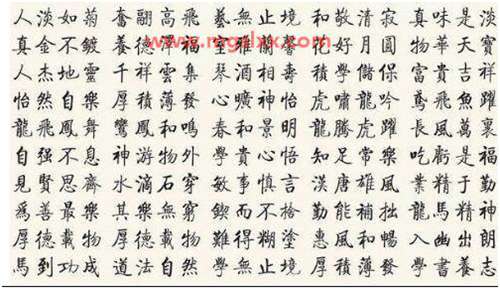 人淡如菊 奮翮高飛 藝無止境 和敬清寂 真味是淡
真金不鍍 養德 花好月圓 物華天寶
www.mgslxx.com
人杰地靈 千祥雲集 琴酒相 積學儲 富貴吉祥
怡然自樂 厚積薄發 心曠神怡 虎嘯龍吟 鳶飛魚躍
龍飛鳳舞 鸞鳳和鳴 春和景明 龍騰虎躍 長風萬裏
自强不息 神游物外 學貴心悟 知足常樂 吃虧是福
見賢思齊 水滴石穿 敏事慎言 漢唐雄風 業精于勤
為善最樂 其樂無窮 鍥而不捨 勤能補拙 龍馬精神
厚德載物 厚德載物 難得糊塗 惠風和暢 入幽出朗
馬到功成 道法自然 學無止境 厚積薄發 學書養志